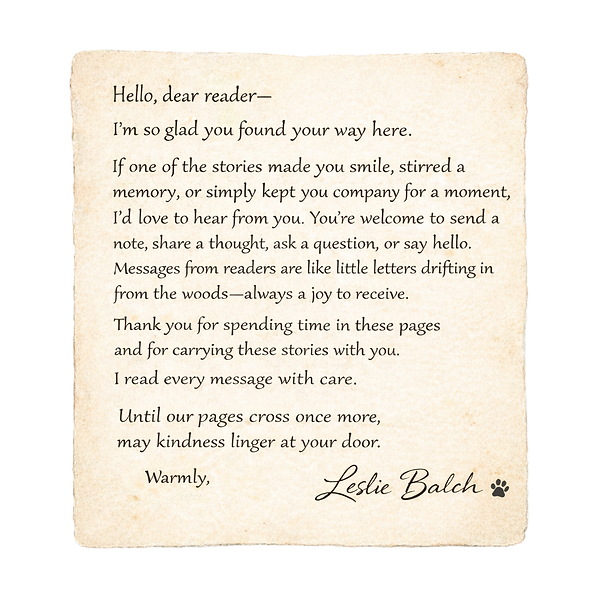 Hello, dear reader—
I'm so glad you found your way here.
If one of the stories made you smile, stirred a
memory, or simply kept you company for a moment,
I'd love to hear from you. You're welcome to send a
note, share a thought, ask a question, or say hello.
Messages from readers are like little letters drifting in
from the woods—always a joy to receive.
Thank you for spending time in these pages
and for carrying these stories with you.
I read every message with care.
Until our pages cross once more,
may kindness linger at your door.
Warmly,
Leslie Balch